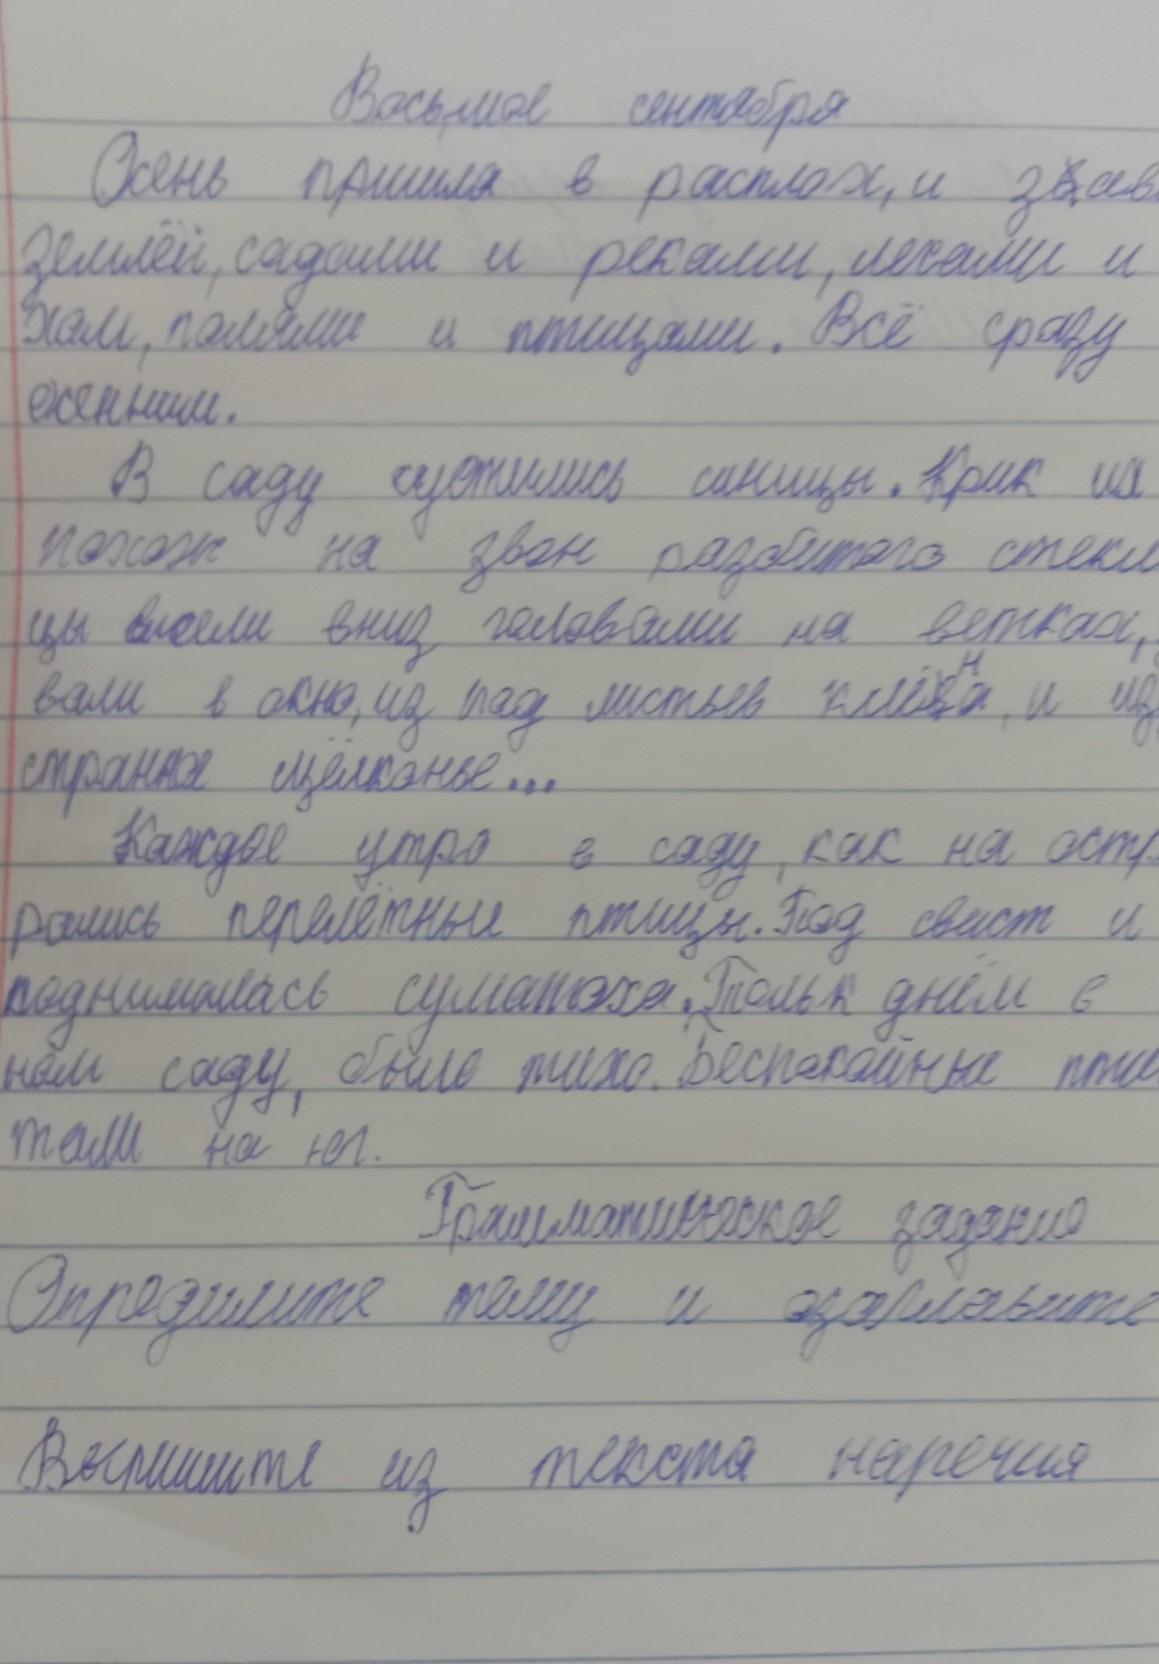 Восьмое сентября
Осень пришла в расплох, и завл
землёй, садами и реками, лесами и
хом, полями и птицами. Всё сразу
осенним.
В саду суетились синицы. Крик их
похож на звон разбитого стекл
цы висели вниз головами на ветках,
вали в окно, из под листьев клёна, и из
странное щёлканье...
Каждое утро в саду, как на остр
рались перелётные птицы. Под свист и
поднималась суматоха. Тольк днём в
ном саду, было тихо. Беспокойные пти
тели на юг.
Грамматическое задание
Определите тему и озаглавьте
Выпишите из текста наречия